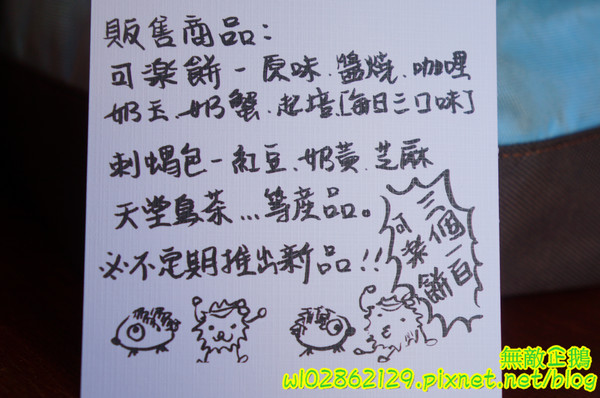 販售商品：
可楽餅－原味.醬燒.咖哩
奶玉.奶蟹.起培[每日三口味]
刺蝟包－紅豆.奶黃.芝麻
天堂鳥茶...等產品。
※不定期推出新品!!
三個一百
可楽餅
無敵企鵝
wl02862129.pixnet.net/blog